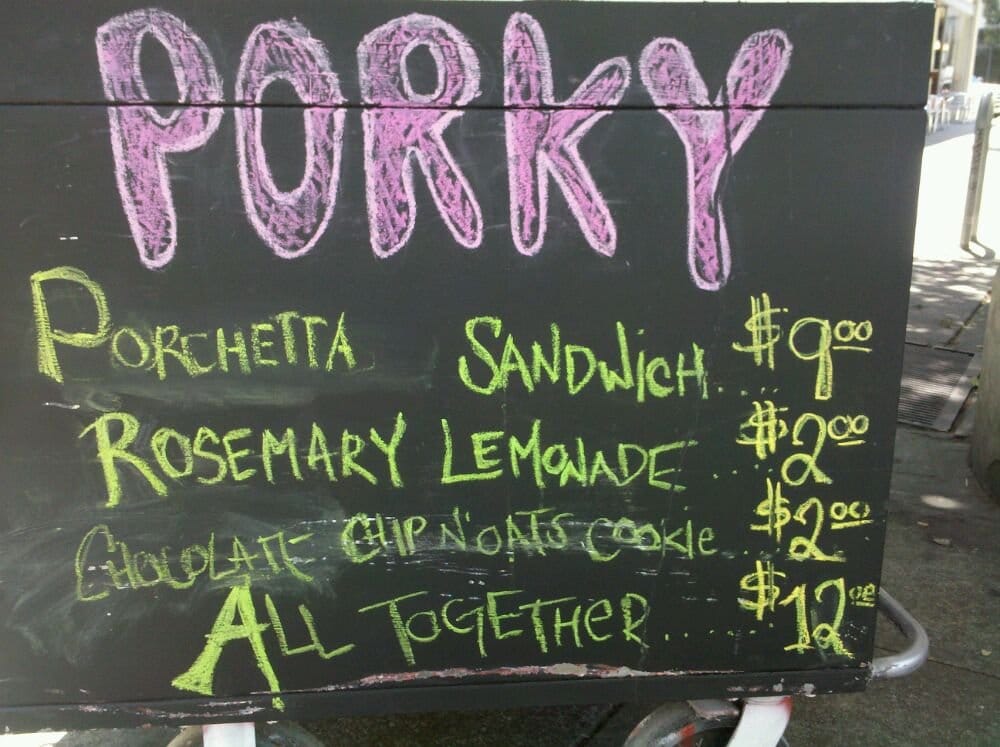 PORKY
PORCHETTA SANDWICH.... $9.00
ROSEMARY LEMONADE.... $2.00
CHOCOLATE CHIP N' OATS COOKIE... $2.00
ALL TOGETHER........ $12.00